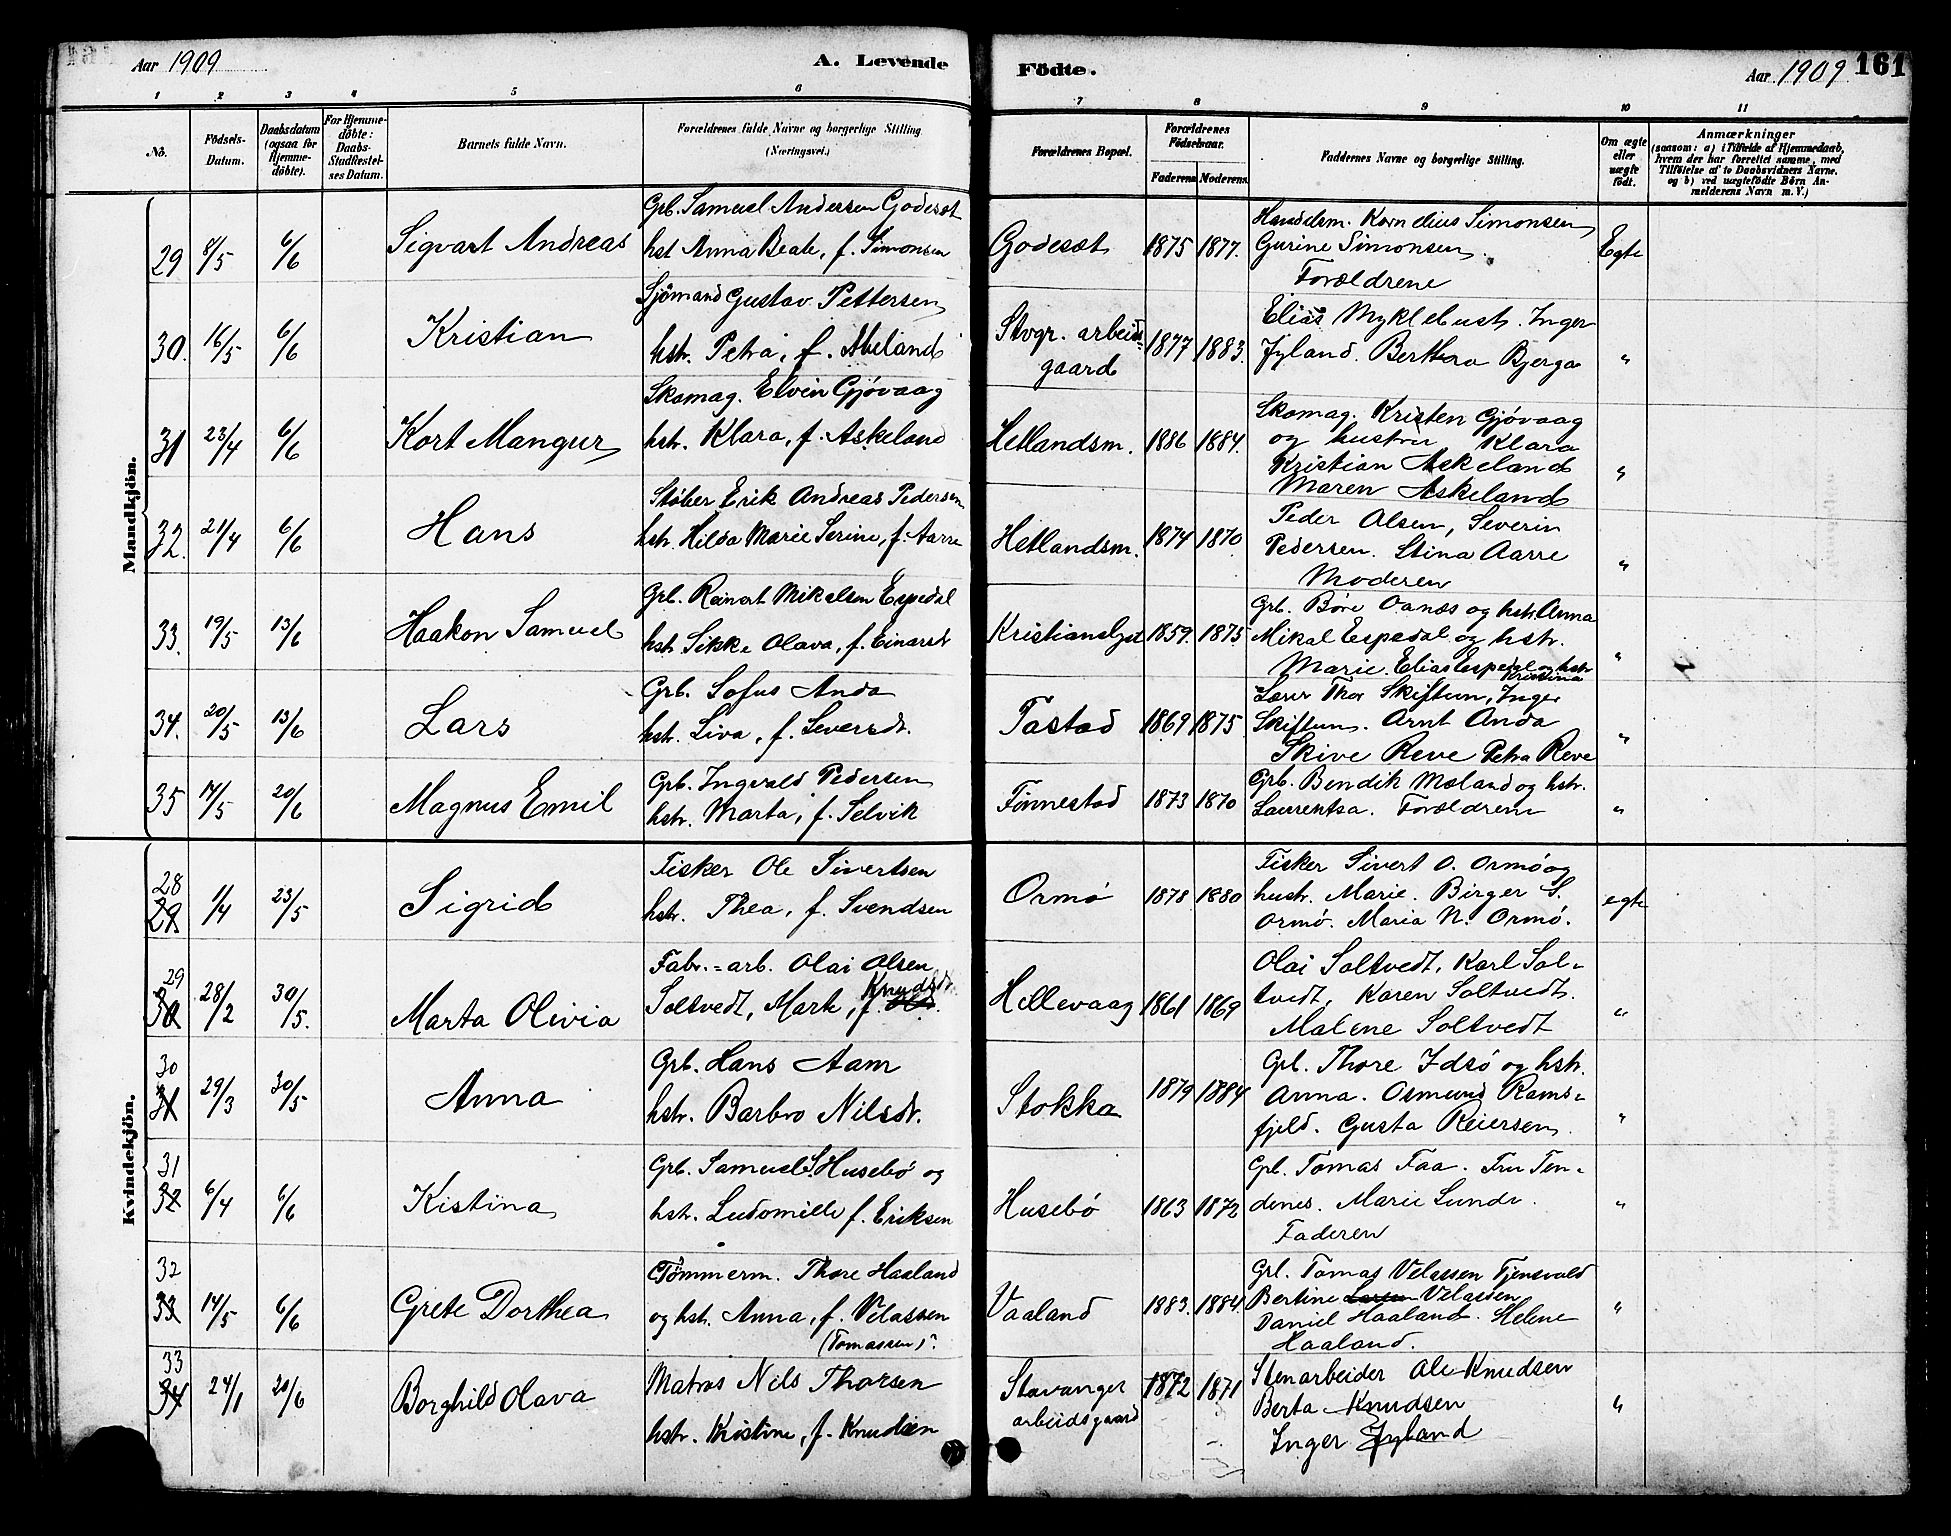 Aar 1909
A. Levende
Födte.
Aar 1909
161
1 2 3 4 5 6 7 8 9 10 11
No.
Födsels-Datum.
Daabsdatum (ogsaa for Hjemme-döbte).
For Hjemme-döbte: Daabs-Stadfæstel-ses Datum.
Barnets fulde Navn.
Forældrenes fulde Navne og borgerlige Stilling (Næringsvei.)
Forældrenes Bopæl.
Forældrenes Födselsaar.
Faderens Moderens.
Faddernes Navne og borgerlige Stilling.
Om ægte eller uægte födt.
Anmærkninger
(saasom: a) i Tilfælde af Hjemmedaab,
hvem der har forrettet samme, med
Tilföielse af to Daabsvidners Navne.
og b) ved uægtefödte Börn An-
melderens Navn m. V.)
Mandkjön.
29 8/5 6/6 Sigvart Andreas
Grb. Samuel Andersen Godeset
hst Anna Beate, f. Simonsen
Godeset 1875 1877.
Handelsm. Kornelius Simonsen
Gurine Simonsen.
Forældrene
Egte
30. 16/5 6/6 Kristian
Sjömand Gustav Pettersen
hstr. Petra, f.
Stvgr. arbeids-
gaard
1877 1883.
Elias Myklebust. Inger
Jyland. Berthea Bjerga
"
31 23/4 6/6 Kort Mangur
Skomag. Elvin Gjövaag
hstr. Klara, f. Askeland
Hetlandsm. 1886 1884.
Skomag. Kristen Gjövaag
og hustru Klara
Kristian Askeland
Maren Askeland
"
32. 21/4 6/6 Hans
Støber Erik Andreas Pedersen
hstr. Hilda Marie Serine, f. Aarre
Hetlandsm. 1874 1870
Peder Olsen, Severin
Pedersen. Stina Aarre
Moderen
"
33. 19/5 13/6 Haakon Samuel
Grb. Reinert Mikalsen Espedal
hst Sikke Olava, f. Einarsdt
Kristianslyst 1859. 1875
Grb. Børe Oanæs og hstr. Anna
Mikal Espedal og hstr.
Marie. Elias Espedal og hstr
Kristina
"
34. 20/5 13/6 Lars
Grb. Sofus Anda
hstr. Siva, f. Seversdt.
Tastad 1869 1875
Lærer Thor Skiftun, Inger
Skiftun. Arnt Anda
Skive Reve Petra Reve
"
35 14/5 20/6 Magnus Emil
Grb. Ingvald Pedersen
hstr. Marta, f. Selvik
Finnestad 1873 1870
Grb. Bendik Mæland og hstr.
Laurentsa. Forældrene
"
Kvindekjön.
28
29 1/4 23/5 Sigrid
Fisker Ole Sivertsen
hstr. Thea, f. Svendsen
Ormø 1878 1880
Fisker Sivert O. Ormø og
hustr. Marie. Birger S.
Ormø. Maria N. Ormø.
egte
29
30 28/2 30/5. Marta Olivia
Fabr.-arb. Olai Olsen
Soltvedt, Marte, f. Knudsdt.
Hillevaag 1861 1869
Olai Soltvedt, Karl Sol-
tvedt, Karen Soltvedt.
Malene Soltvedt
"
30
31 29/3 30/5 Anna
Grb. Hans Aam
hstr. Barbro Nilsdt.
Stokka 1879 1884
Grb. Thore Idsö og hstr.
Anna. Osmund Rams-
fjeld. Gusta Reiersen.
"
31
32 6/4 6/6 Kistina
Grb. Samuel S. Husebö og
hstr. Ludomille f. Eriksen
Husebö 1863 1872
Grb. Tomas Faa. Fru Ten-
denes. Marie Lunde.
Faderen
"
32
33 14/5 6/6 Grete Dorthea
Tömmerm. Thore Haaland
og hst. Anna, f. Velassen
(Tomassen)?
Vaaland 1883. 1884.
Grb. Tomas Velassen Tjensvold
Bertine Velassen
Daniel Haaland. Helene
Haaland.
"
33
34 24/1 20/6 Borghild Olava
Matros Nils Thorsen
hstr. Kristine, f. Knudsen
Stavanger
arbeidsgaard
1872 1871
Stenarbeider Ole Knudsen
Berta Knudsen
Inger Jyland
"